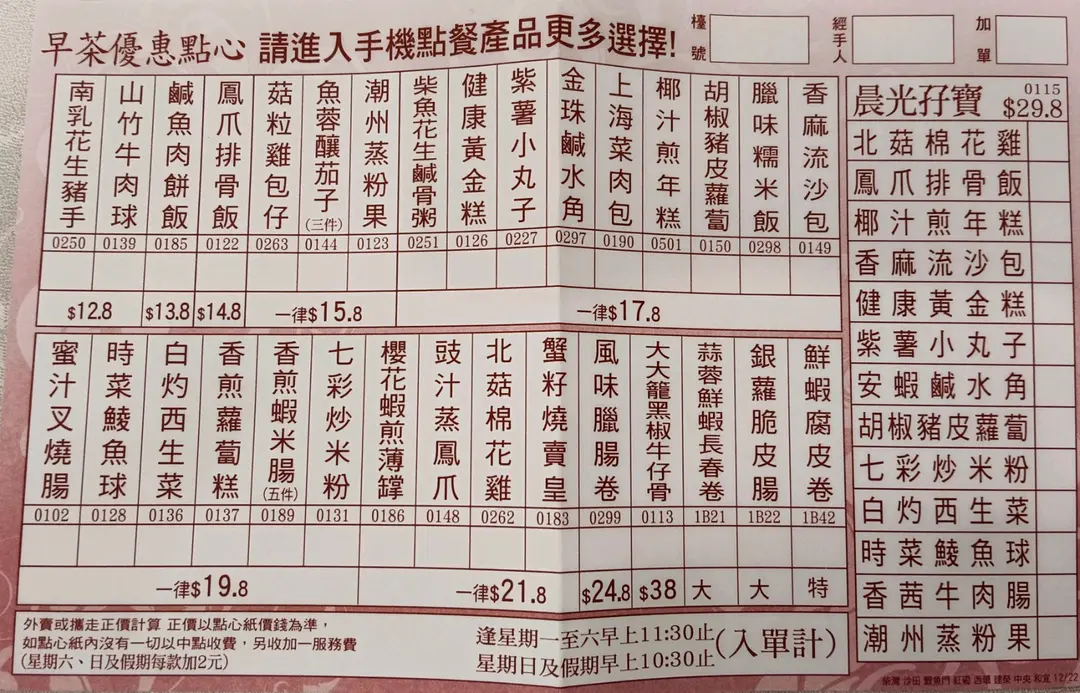 早茶優惠點心 請進入手機點餐產品更多選擇!
檯號
經手人
加單
南乳花生豬手
山竹牛肉球
鹹魚肉餅飯
鳳爪排骨飯
菇粒雞包仔
魚蓉釀茄子(三件)
潮州蒸粉果
柴魚花生鹹骨粥
健康黃金糕
紫薯小丸子
金珠鹹水角
上海菜肉包
椰汁煎年糕
胡椒豬皮蘿蔔
臘味糯米飯
香麻流沙包
0250 0139 0185 0122 0263 0144 0123 0251 0126 0227 0297 0190 0501 0150 0298 0149
$12.8 $13.8 $14.8 一律$15.8 一律$17.8
蜜汁叉燒腸
時菜鯪魚球
白灼西生菜
香煎蘿蔔糕
香煎蝦米腸(五件)
七彩炒米粉
櫻花蝦煎薄罉
豉汁蒸鳳爪
北菇棉花雞
蟹籽燒賣皇
風味臘腸卷
大大龍黑椒牛仔骨
蒜蓉鮮蝦長春卷
銀蘿脆皮腸
鮮蝦腐皮卷
0102 0128 0136 0137 0189 0131 0186 0148 0262 0183 0299 0113 1B21 1B22 1B42
一律$19.8 一律$21.8 $24.8 $38 大 大 特
外賣或攜走正價計算 正價以點心紙價錢為準,
如點心紙內沒有一切以中點收費,另收加一服務費
(星期六、日及假期每款加2元)
逢星期一至六早上11:30止
星期日及假期早上10:30止
(入單計)
晨光孖寶 0115 $29.8
北菇棉花雞
鳳爪排骨飯
椰汁煎年糕
香麻流沙包
健康黃金糕
紫薯小丸子
安蝦鹹水角
胡椒豬皮蘿蔔
七彩炒米粉
白灼西生菜
時菜鯪魚球
香茜牛肉腸
潮州蒸粉果
柴灣 沙田 鯉魚門 紅磡 西環 建榮 中央 和宜 12/22